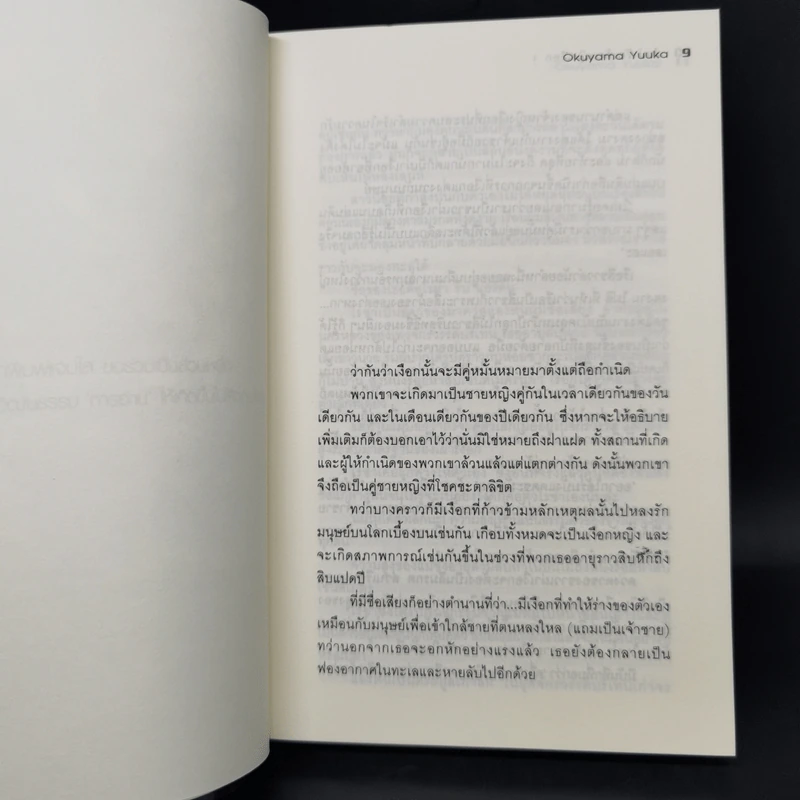 Okuyama Yuuka 9
ว่ากันว่าเงือกนั้นจะมีคู่หมั้นหมายมาตั้งแต่ถือกำเนิด
พวกเขาจะเกิดมาเป็นชายหญิงคู่กันในเวลาเดียวกันของวัน
เดียวกัน และในเดือนเดียวกันของปีเดียวกัน ซึ่งหากจะให้อธิบาย
เพิ่มเติมก็ต้องบอกเอาไว้ว่านั่นมิใช่หมายถึงฝาแฝด ทั้งสถานที่เกิด
และผู้ให้กำเนิดของพวกเขาล้วนแล้วแต่แตกต่างกัน ดังนั้นพวกเขา
จึงถือเป็นคู่ชายหญิงที่โชคชะตาลิขิต
ทว่าบางคราวก็มีเงือกที่ก้าวข้ามหลักเหตุผลนั้นไปหลงรัก
มนุษย์บนโลกเบื้องบนเช่นกัน เกือบทั้งหมดจะเป็นเงือกหญิง และ
จะเกิดสภาพการณ์เช่นกันขึ้นในช่วงที่พวกเธออายุราวสิบหกถึง
สิบแปดปี
ที่มีชื่อเสียงก็อย่างตำนานที่ว่า...มีเงือกที่ทำให้ร่างของตัวเอง
เหมือนกับมนุษย์เพื่อเข้าใกล้ชายที่ตนหลงใหล (แถมเป็นเจ้าชาย)
ทว่านอกจากเธอจะอกหักอย่างแรงแล้ว เธอยังต้องกลายเป็น
ฟองอากาศในทะเลและหายลับไปอีกด้วย